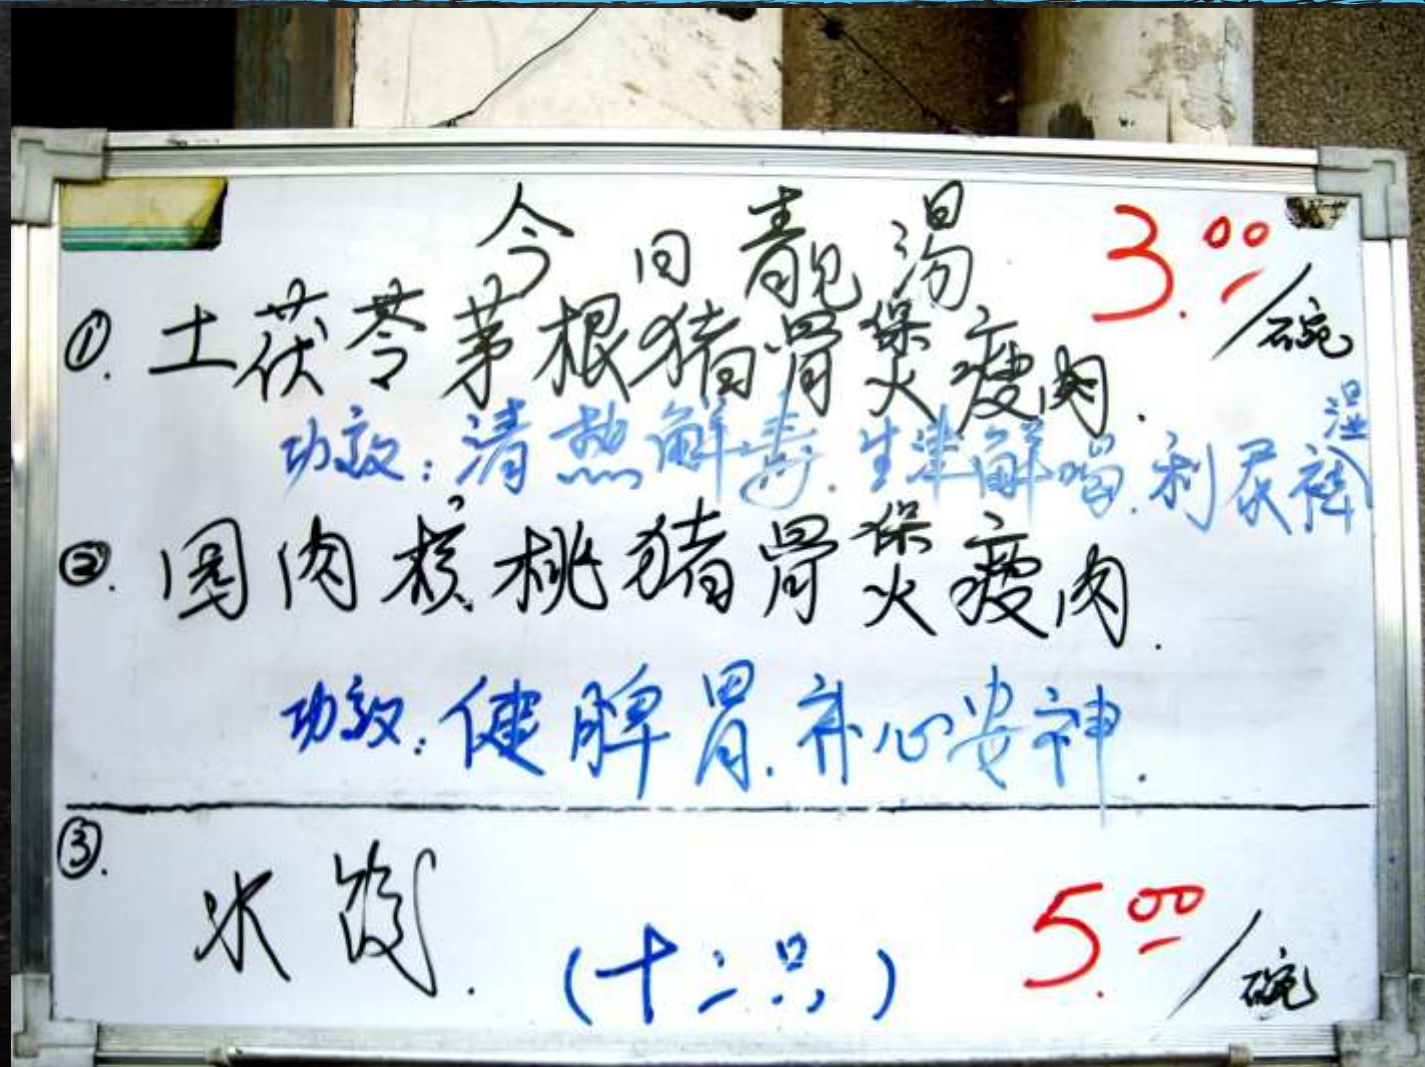 今日靓湯 3.00/碗
①. 土茯苓茅根猪骨煲瘦肉.
功效：清热解毒.生津解渴.利尿祛湿
②. 圆肉核桃猪骨煲瘦肉.
功效：健脾胃.补心安神.
③. 水饺. (十二只) 5.00/碗